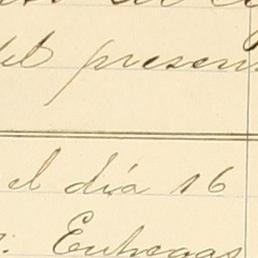 del presen
el día 16
Entregas